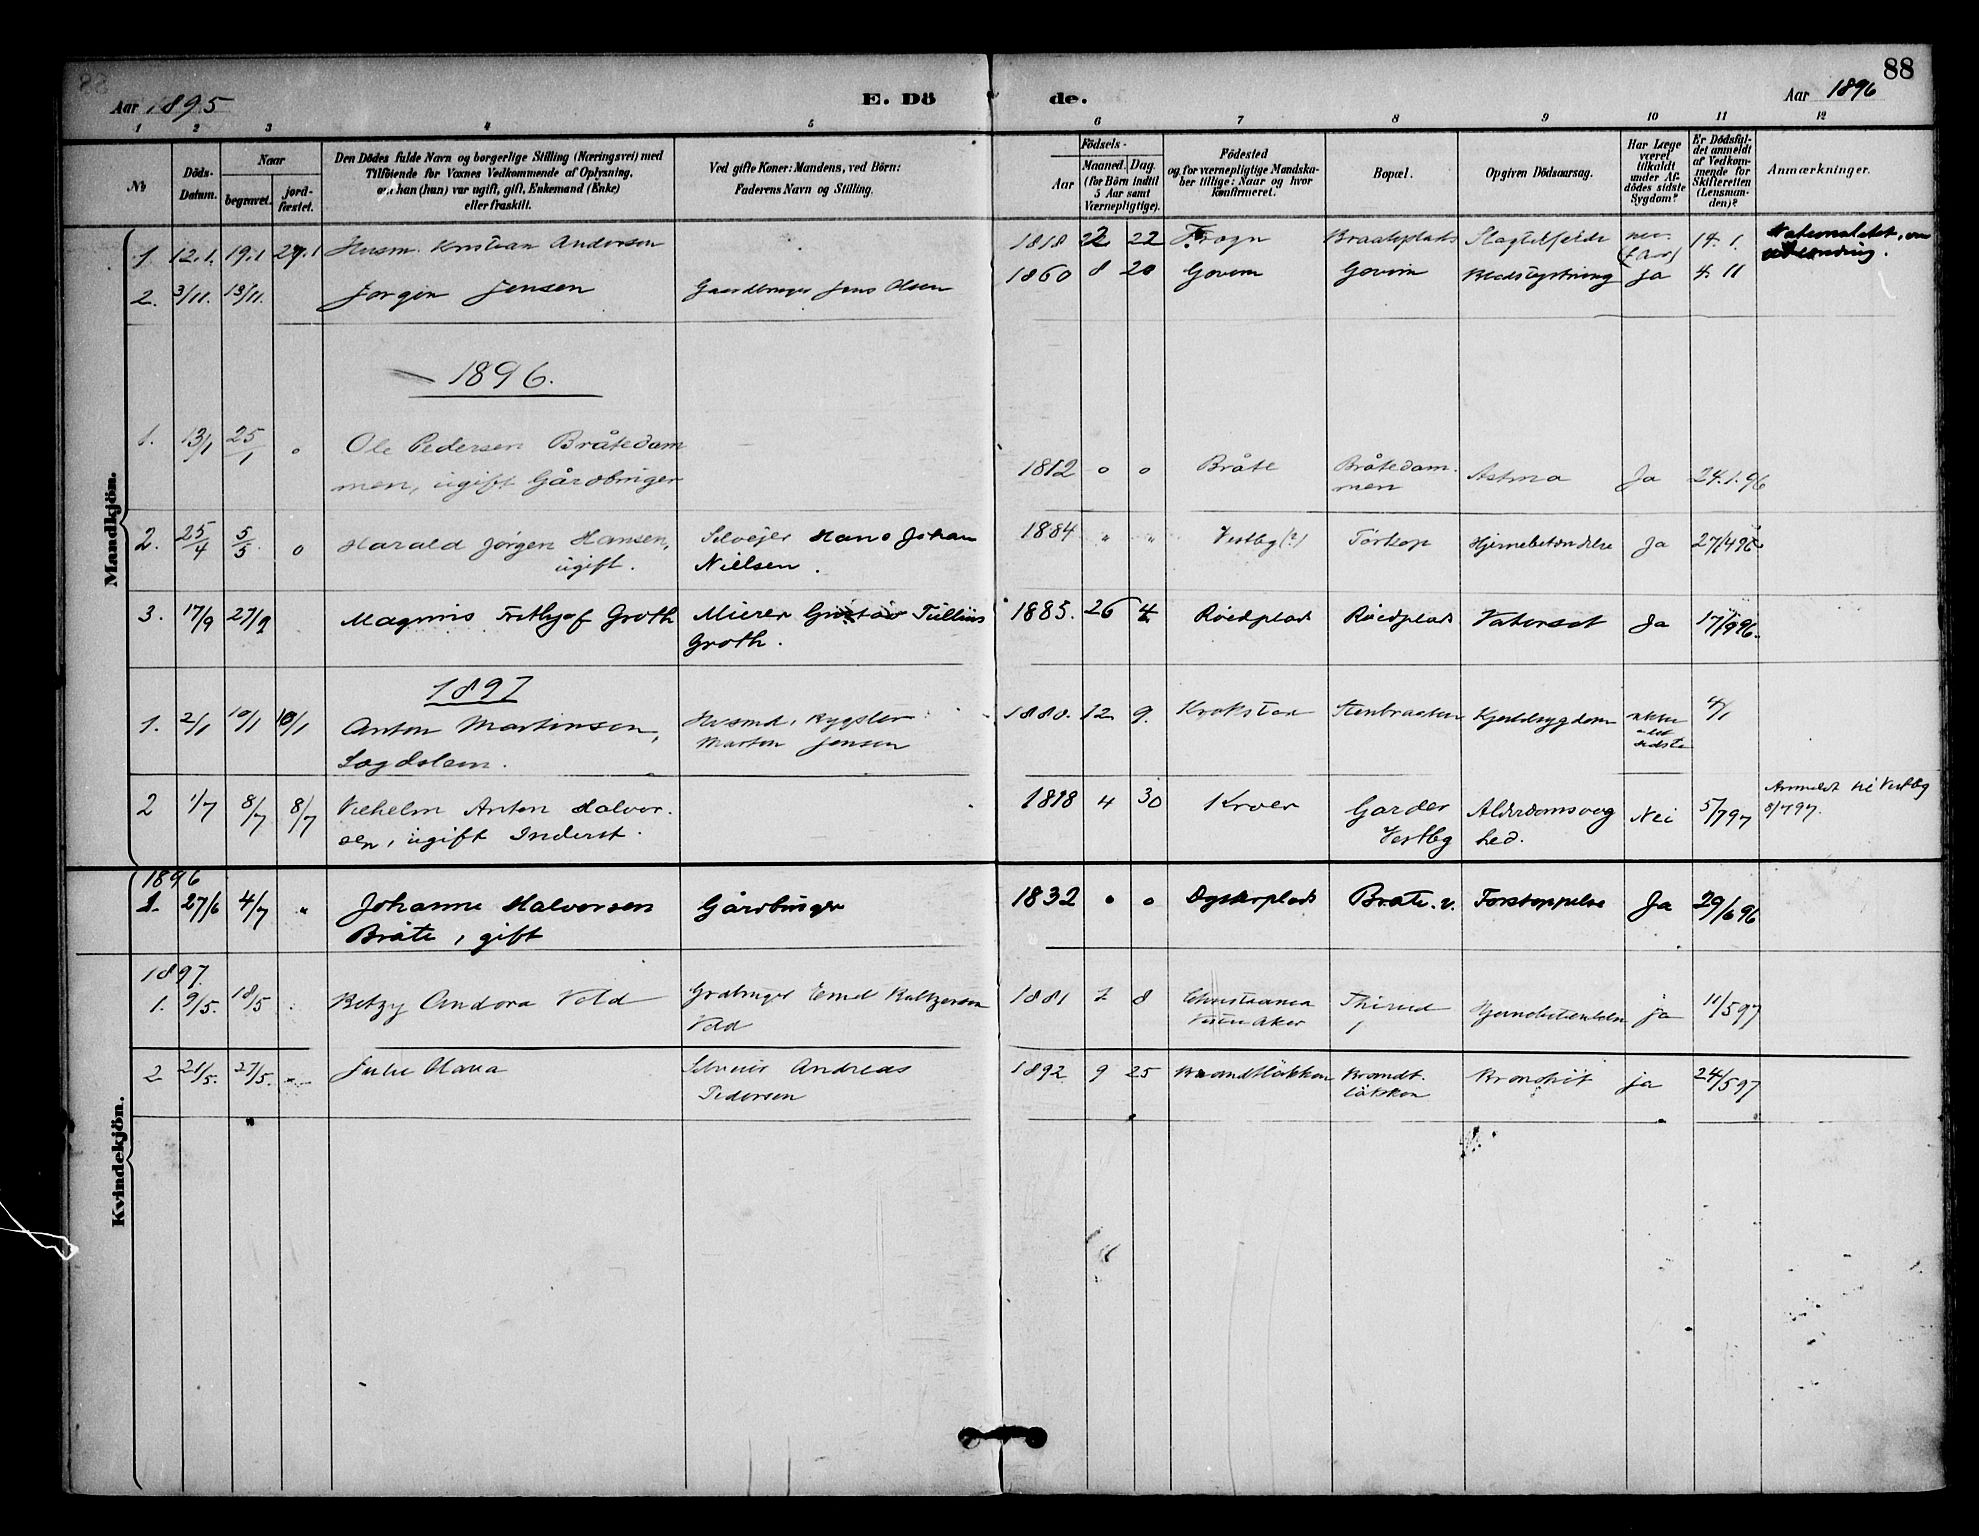 88
Aar 1895
E. Dö
de.
Aar 1896
1 2 3 4 5 6 7 8 9 10 11 12
No
Döds-
Datum.
Naar
begravet.
jord-
fæstet.
Den Dödes fulde Navn og borgerlige Stilling (Næringsvei) med
Tilföiende for Voxnes Vedkommende af Oplysning,
om han (hun) var ugift, gift, Enkemand (Enke)
eller fraskilt.
Ved gifte Koner: Mandens, ved Börn:
Faderens Navn og Stilling.
Födsels-
Aar
Maaned. Dag.
(for Börn indtil
5 Aar samt
Værnepligtige).
Födested
og for værnepligtige Mandska-
ber tillige: Naar og hvor
konfirmeret.
Bopæl.
Opgiven Dödsaarsag.
Har Læge
været
tilkaldt
under Af-
dödes sidste
Sygdom?
Er Dödsfal-
det anmeldt
af Vedkom-
mende for
Skifteretten
(Lensman-
den)?
Anmærkninger.
Mandkjön.
1. 12.1. 19.1 27.1 Husm. Kristian Andersen 1818 22 Frogn Braateplads Slagtilfælde 14.1.
2. 3/11. 13/11. Jørgen Jensen Gaardbruger Jens Olsen 1860 8 20 Govim Govim Blodstyrtning Ja 4. 11
1896.
1. 13/1 25/1 o Ole Pedersen Bråtedam
men, ugift Gårdbruger
1812 o o Bråte Bråtedam-
men
Astma Ja 24.1.96
2. 25/4 5/5. o Harald Jørgen Hansen,
ugift.
Selvejer Hans Johan
Nielsen.
1884 " " Vestby (?) Torkop Hjernebetændelse Ja 27/4 96.
3. 17/9 27/9 Magnus Frithjof Groth Murer Gustav Tullius
Groth.
1885. 26 4 Røedplads Røedplads Vatersot Ja 17/9 96.
1897
1. 2/1 10/1 10/1 Anton Martinsen,
Lagdslem.
Husmd. Bygsler
Martin Jensen
1880. 12 9. Krokstad Stenbraaten Kjertelsygdom 4/1
2 1/7 8/7 8/7 Vilhelm Anton Halvor-
sen, ugift Inderst.
1818 4 30 Kroer Garder
Vestby
Alderdomssvag
hed.
Nei 5/7 97 Anmeldt til Vestby
8/7 97.
Kvindekjön.
1896
1. 27/6 4/7 " Johanne Halvorsen
Bråte, gift
Gårdbruger 1832 o o Dysterplads Bråte. v. Forstoppelse Ja 29/6 96
1897.
1. 9/5. 18/5 Betzy Andora Vold Grdbruger Emil Baltzersen
Vold
1881 7 8 Christiania
Vestre Aker
Thirud Hjernebetændelse ja 11/5 97
2 21/5. 27/5. Julie Maria Selveier Andreas
Pedersen
1892 9 25 Brandtløkken Brandt-
løkken
Bronchit ja 24/5 97